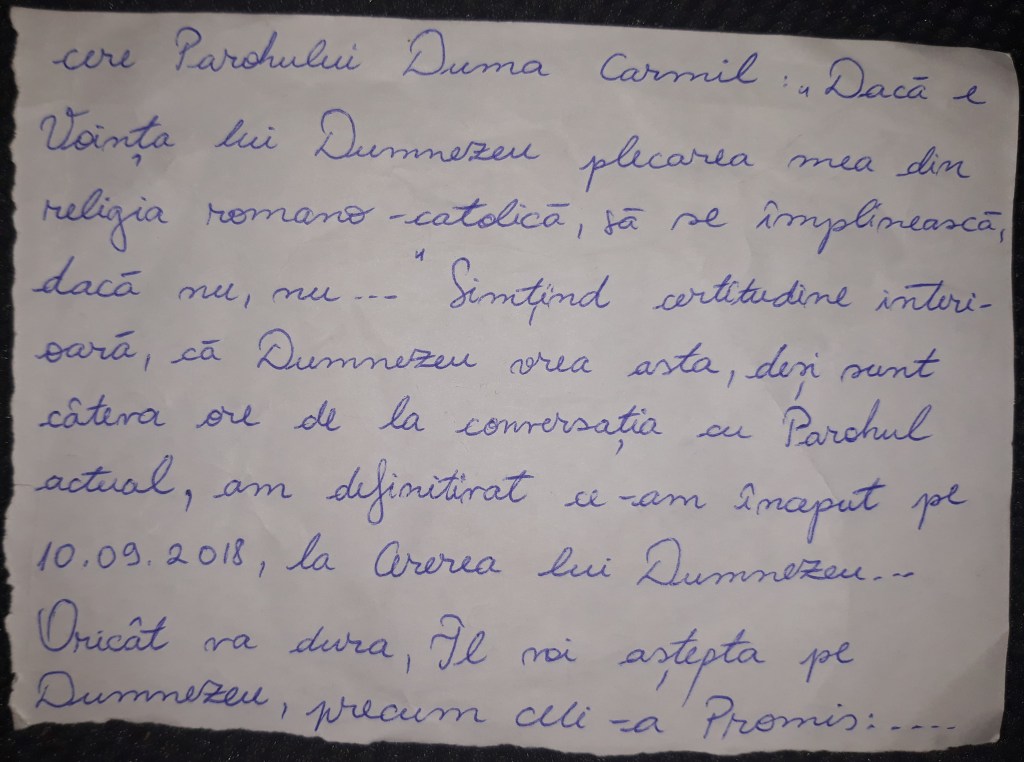 cere Parohului Duma Carmil : „Dacă e
Voința lui Dumnezeu plecarea mea din
religia romano-catolică, să se împlinească,
dacă nu, nu ... " Simțind certitudine interi-
oară, că Dumnezeu vrea asta, deși sunt
câteva ore de la conversația cu Parohul
actual, am definitivat ce-am început pe
10.09.2018, la Cererea lui Dumnezeu...
Oricât va dura, Îl voi aștepta pe
Dumnezeu, precum Mi-a Promis: .....